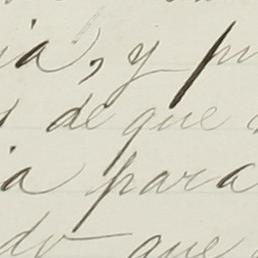 ia, y pu
de que
a para
do que